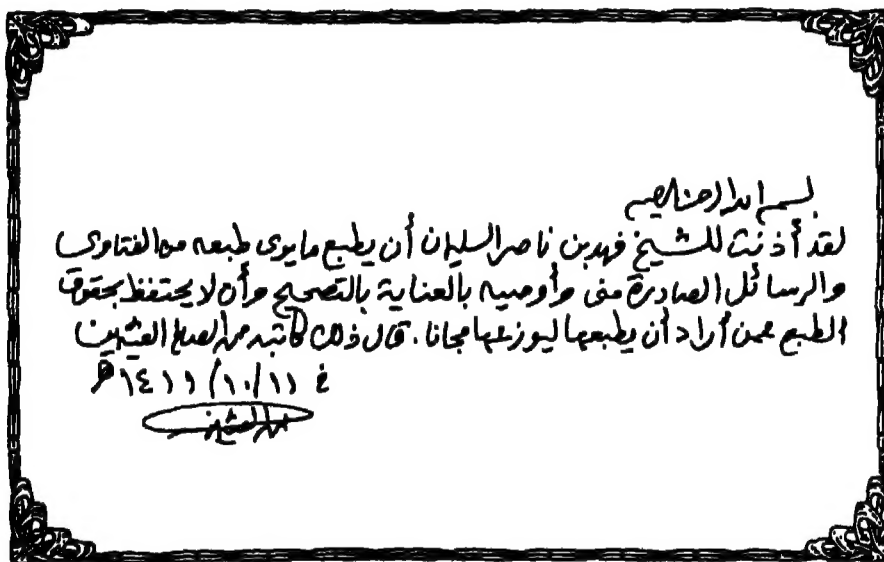 بسم الله الرحمن الرحيم
لقد أذنت للشيخ فهد بن ناصر السليمان أن يطبع ما يرى طبعه من الفتاوى
والرسائل الصادرة مني وأوصيه بالعناية بالتصحيح وأن لا يحتفظ بحقوق
الطبع عمن أراد أن يطبعها ليوزعها مجانا. قال ذلك كاتبه محمد الصالح العثيمين
في ١٤١١/١٠/١١ هـ